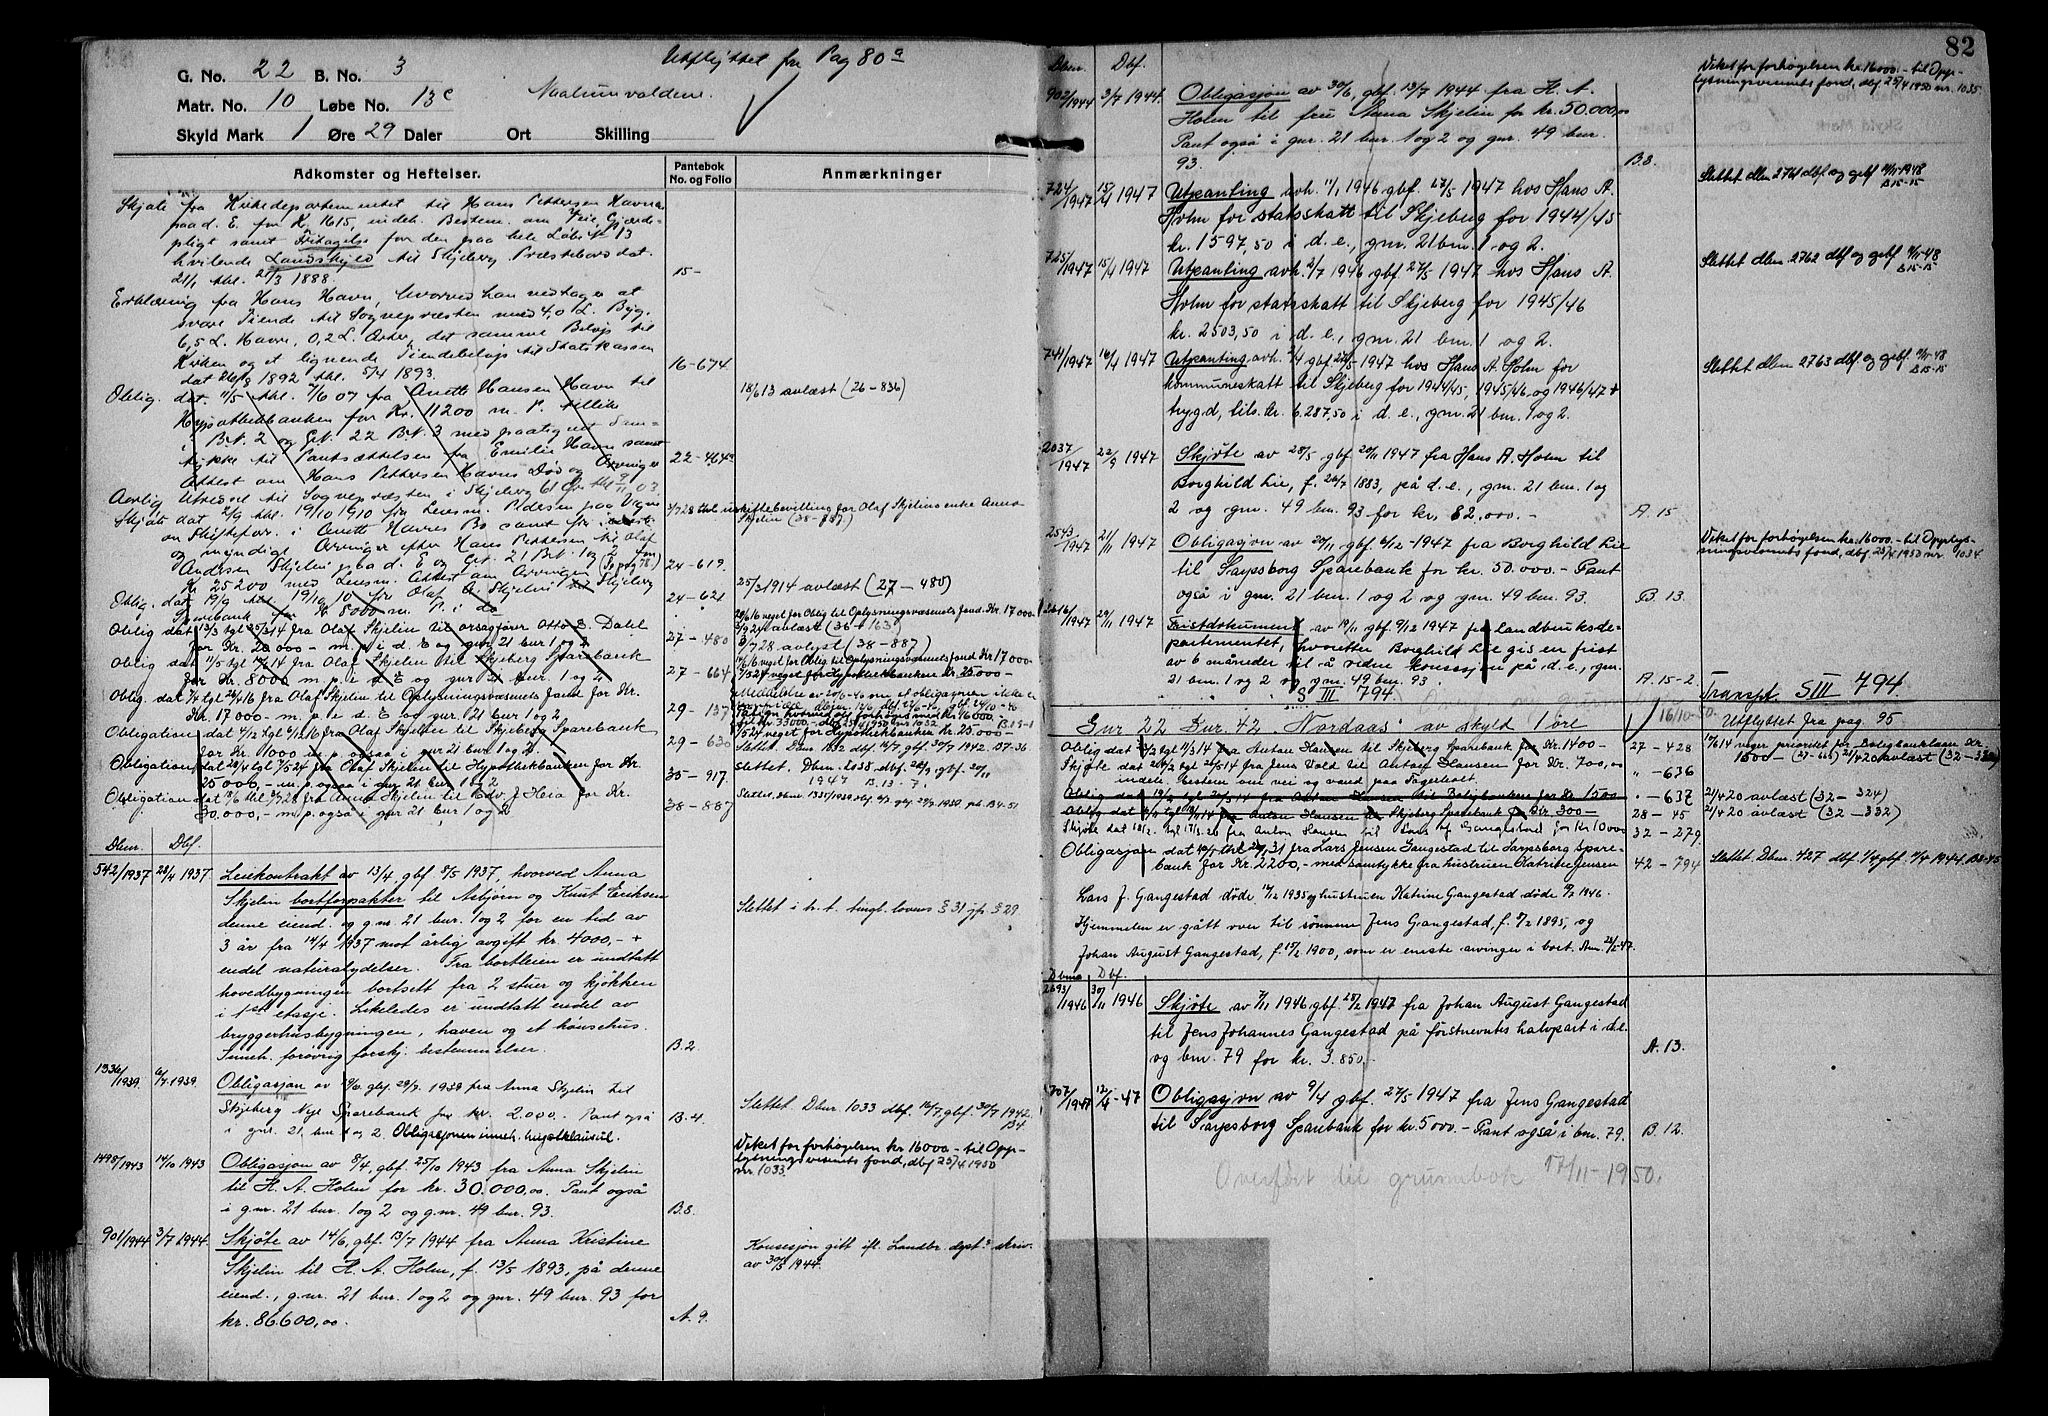 Utflyttet fra Pag 80 a
G. No. 22 B. No. 3
Matr. No. 10 Løbe No. 13c
Skyld Mark 1 Øre 29 Daler Ort Skilling
Adkomster og Heftelser.
Pantebok
No. og Folio
Anmærkninger
Skjøte fra Kirkedepartementet til Hans Pettersen Havn
paa d. E. for K. 1615, indeh. Bestem. om Veie, Gjærde-
pligt samt Fritagelse for den paa hele Løbe № 13
hvilende Landskyld til Skjeberg Præstebord dat.
21/1 thl. 21/3 1888.
15-
Erklæring fra Hans Havn, hvorved han vedtager at
svare Tiende til Sognepræsten med 4,0 L. Byg,
6,5 L. Havre, 0,2 L. Erter, det samme Beløp til
Kirken og et lignende Tiendebeløp til Statskassen
dat 26/8 1892 thl. 5/4 1893.
16-674.
Oblig. dat. 11/5 thl. 7/6 07 fra Anette Hansen Havn til
Hypothekbanken for Kr. 11200 m. P. tillike
i Br. 2 og Gr. 22 Br. 3 med paategnet Sam-
tykke til Pantsættelsen fra Emilie Havn samt
Attest om Hans Pettersen Havns Død og Arvinger
22-464
18/6 13 avlæst (26-836)
Aarlig Utredsel til Sognepræsten i Skjeberg
Skjøte dat 2/9 thl. 19/10 1910 fra Lensm. Pedersen paa Vegne
av Skifteforv. i Anett Havns Bo samt fra
og myndige Arvinger efter Hans Pettersen til Olaf
Andersen Skjelin paa d. E og Gr. 21 Br. 1 og 2 for
Kr. 25200 med Lensm. Attest om Arvingen (Se pag 78.)
24-619.
3/7 28 thl. uskiftebevilling for Olaf Skjelins enke Anna
Skjelin (38-887)
Oblig. dat. 19/9 thl. 19/10 10 fra Olaf A. Skjelin til Skjeberg
Sparebank for K. 8000 m. P. i do
24-621
25/3 1914 avlæst (27-480)
Oblig dat 13/3 tgl 25/3 14 fra Olaf Skjelin til Otto E. Dahl
for Kr. 20000 - m. p. i d. E og gnr 21 bnr 1 og 2
27-480
Oblig dat 11/5 tgl 14/6 14 fra Olaf Skjelin til Skjeberg Sparebank
for Kr. 8000 m. p. i d E og gnr 21 bnr. 1 og 2
27-664
Oblig. dat 7/4 tgl 26/4 16 fra Olaf Skjelin til Oplysningsvæsnets fond for Kr.
Kr. 17000 - m. p. i d. E og gnr. 21 bnr 1 og 2
29-137
Obligation dat 4/12 tgl 6/12 16 fra Olaf Skjelin til Skjeberg Sparebank
for Kr. 1000 m. p. ogsaa i gnr 21 bnr 1 og 2.
29-630
Obligation dat 28/4 tgl 7/5 24 fra Olaf Skjelin til Hypothekbanken for Kr.
25000,- m. p. ogsaa i gnr 21 bnr 1 og 2
35-917
Obligation dat 19/6 thl. 3/7 28 fra Anna Skjelin til Edv. J Heia for Kr.
30.000,- m. p. også i gnr 21 bnr 1 og 2
38-887
Dbnr. Dbf.
542/1937 28/4 1937 Leiekontrakt av 13/4, gbf. 8/5 1937, hvorved Anna
Skjelin bortforpakter til Asbjørn og Knut Eriksen
denne eiend. og g.nr. 21 bnr. 1 og 2 for en tid av
3 år fra 14/4 1937 mot årlig avgift kr. 4000,- +
endel naturalydelser. Fra bortleien er undtatt
hovedbygningen bortsett fra 2 stuer og kjøkken
i 1ste etasje. Likeledes er undtatt endel av
bryggerhusbygningen, haven og et hønsehus.
Inneh. forøvrig forskj. bestemmelser.
B.2.
Slettet i h. t. tingl. lovens § 31 jfr. § 29
1336/1939 6/7 1939. Obligasjon av gbf. 29/7. 1939 fra Anna Skjelin til
Skjeberg Nye Sparebank for kr. 2.000. Pant også
i gnr. 21. bnr 1 og 2. Obligasjonen inneh.
B.4.
Slettet. Dbnr. 1033 dbf. 16/7, gbf. 30/7 1942.
B4
1498/1943 14/10 1943 Obligasjon av 8/4, gbf. 25/10 1943 fra Anna Skjelin
til H. A. Holm for kr. 30.000,00. Pant også
i g.nr. 21 bnr. 1 og 2 og g.nr. 49 bnr. 93.
B.8.
Veket for forhøgelsen kr 16000.- til Opp-
lysningsvesenets fond, dbf. 25/4 1950
nr. 1033
901/1944 3/7 1944. Skjøte av 14/6, gbf. 13/7 1944 fra Anna Kristine
Skjelin til H. A. Holm, f. 13/5 1893, på denne
eiend., g.nr. 21 bnr. 1 og 2 og gnr. 49 bnr. 93 for
kr. 86.600,00.
A. 9.
Konsesjon gitt ifl. Landbr. dept.s skriv.
av 30/5 1944.
82
Dbnr. Dbf.
902/1944 3/7 1944. Obligasjon av 30/6, gbf. 13/7 1944 fra H. A.
Holm til fru Anna Skjelin for kr. 50.000,00
Pant også i gnr. 21 bnr. 1 og 2 og gnr. 49 bnr.
93.
B.8.
Veket for forhøgelsen kr. 16000.- til Opp-
lysningsvesenets fond, dbf 25/4 1950 nr. 1035
724/1947 15/4 1947 Utpanting avh. 11/1 1946 gbf. 27/5 1947 hos Hans A.
Holm for statsskatt til Skjeberg for 1944/45
kr. 1597,50 i d. e., gnr. 21 bnr. 1 og 2.
Slettet dbnr 2761 dbf og gebf 11/11-1948
B 15-15
725/1947 15/4 1947 Utpanting avh. 2/7 1946 gbf 27/5 1947 hos Hans A.
Holm for statsskatt til Skjeberg for 1945/46
kr. 2503,50 i d. e., gnr. 21 bnr. 1 og 2.
Slettet dbnr 2762 dbf og gebf. 11/11-48
B 15-15
741/1947 16/4 1947 Utpanting avh. gbf. 27/5-1947 hos Hans A. Holm for
kommuneskatt til Skjeberg for 1944/45, 1945/46 og 1946/47 +
trygd, tils. kr. 6.287,50 i d. e., gnr. 21 bnr. 1 og 2.
Slettet dbnr 2763 dbf og gebf. 11/11-48
B 15-15
2037/1947 22/9 1947 Skjøte av 28/5 gbf. 20/11 1947 fra Hans A. Holm til
Borghild Lie, f. 26/7 1883, på d. e., gnr. 21 bnr. 1 og
2 og gnr. 49 bnr. 93 for kr. 82.000.-
A. 15
2543/1947 21/11 1947 Obligasjon av 20/11 gbf. 6/12-1947 fra Borghild Lie
til Sarpsborg Sparebank for kr. 50.000.- Pant
også i gnr. 21 bnr. 1 og 2 og gnr. 49 bnr. 93.
B. 13.
Veket for forhøgelsen kr. 16000.- til Opplys-
ningsvesenets fond, dbf. 25/4 1950 nr. 1034
2616/1947 29/11 1947 Fristdokument av 19/11 gbf. 9/12 1947 fra Landbruksde-
partementet, hvoretter Borghild Lie gis en frist
av 6 måneder til å ordne konsesjon på d. e., gnr.
21 bnr. 1 og 2 og gnr. 49 bnr. 93.
A. 15-2.
S III 794.
Transp. S III 794
16/10-50.
Gnr 22 Bnr 42 Nordaas av skyld 1 øre
Utflyttet fra pag. 95
Oblig dat 3/2 tgl 11/3 14 fra Anton Hansen til Skjeberg Sparebank for Kr. 1400-
27-428
Skjøte dat 20/2 tgl 26/5 14 fra Jens Vold til Anton Hansen for Kr. 700,00
indeh. bestem om vei og vand paa Fagerholt.
"-636
Oblig dat 19/2 tgl 26/5 14 fra Anton Hansen til Boligbanken for Kr 1500
"-637
21/4 20 avlæst (32-324)
Oblig dat tgl 14 fra Anton Hansen til Skjeberg Sparebank for Kr. 300-
28-45
21/4 20 avlæst (32-332)
Skjøte dat 18/2. tgl 17/3. 20 fra Anton Hansen til Lars J. Gangestad for Kr 10000
32-279
Obligasjon dat thl 31 fra Lars Jensen Gangestad til Sarpsborg Spare-
bank for Kr. 2200,- med samtykke fra hustruen Katrine Jensen
42-794
Slettet Dbnr. 427 dbf. 1/4, gbf. 4/4 1944
Lars J. Gangestad døde 17/12 1935 og hustruen Katrine Gangestad døde 9/2 1946.
Hjemmelen er gått over til sønnene Jens Gangestad, f. 7/2 1895, og
Johan August Gangestad, f. 15/2 1900, som er eneste arvinger i boet.
Dbnr. Dbf.
2693/1946 30/11 1946 Skjøte av 7/11 1946 gbf. 25/2 1947 fra Johan August Gangestad
til Jens Johannes Gangestad på førstnevntes halvpart i d. e.
og bnr. 79 for kr. 3.850,-
A. 13.
707/1947 12/4-47 Obligasjon av 9/4 gbf. 27/5 1947 fra Jens Gangestad
til Sarpsborg Sparebank for kr. 5000.- Pant også i bnr. 79.
B. 12.
Overført til grunnbok 17/11-1950.